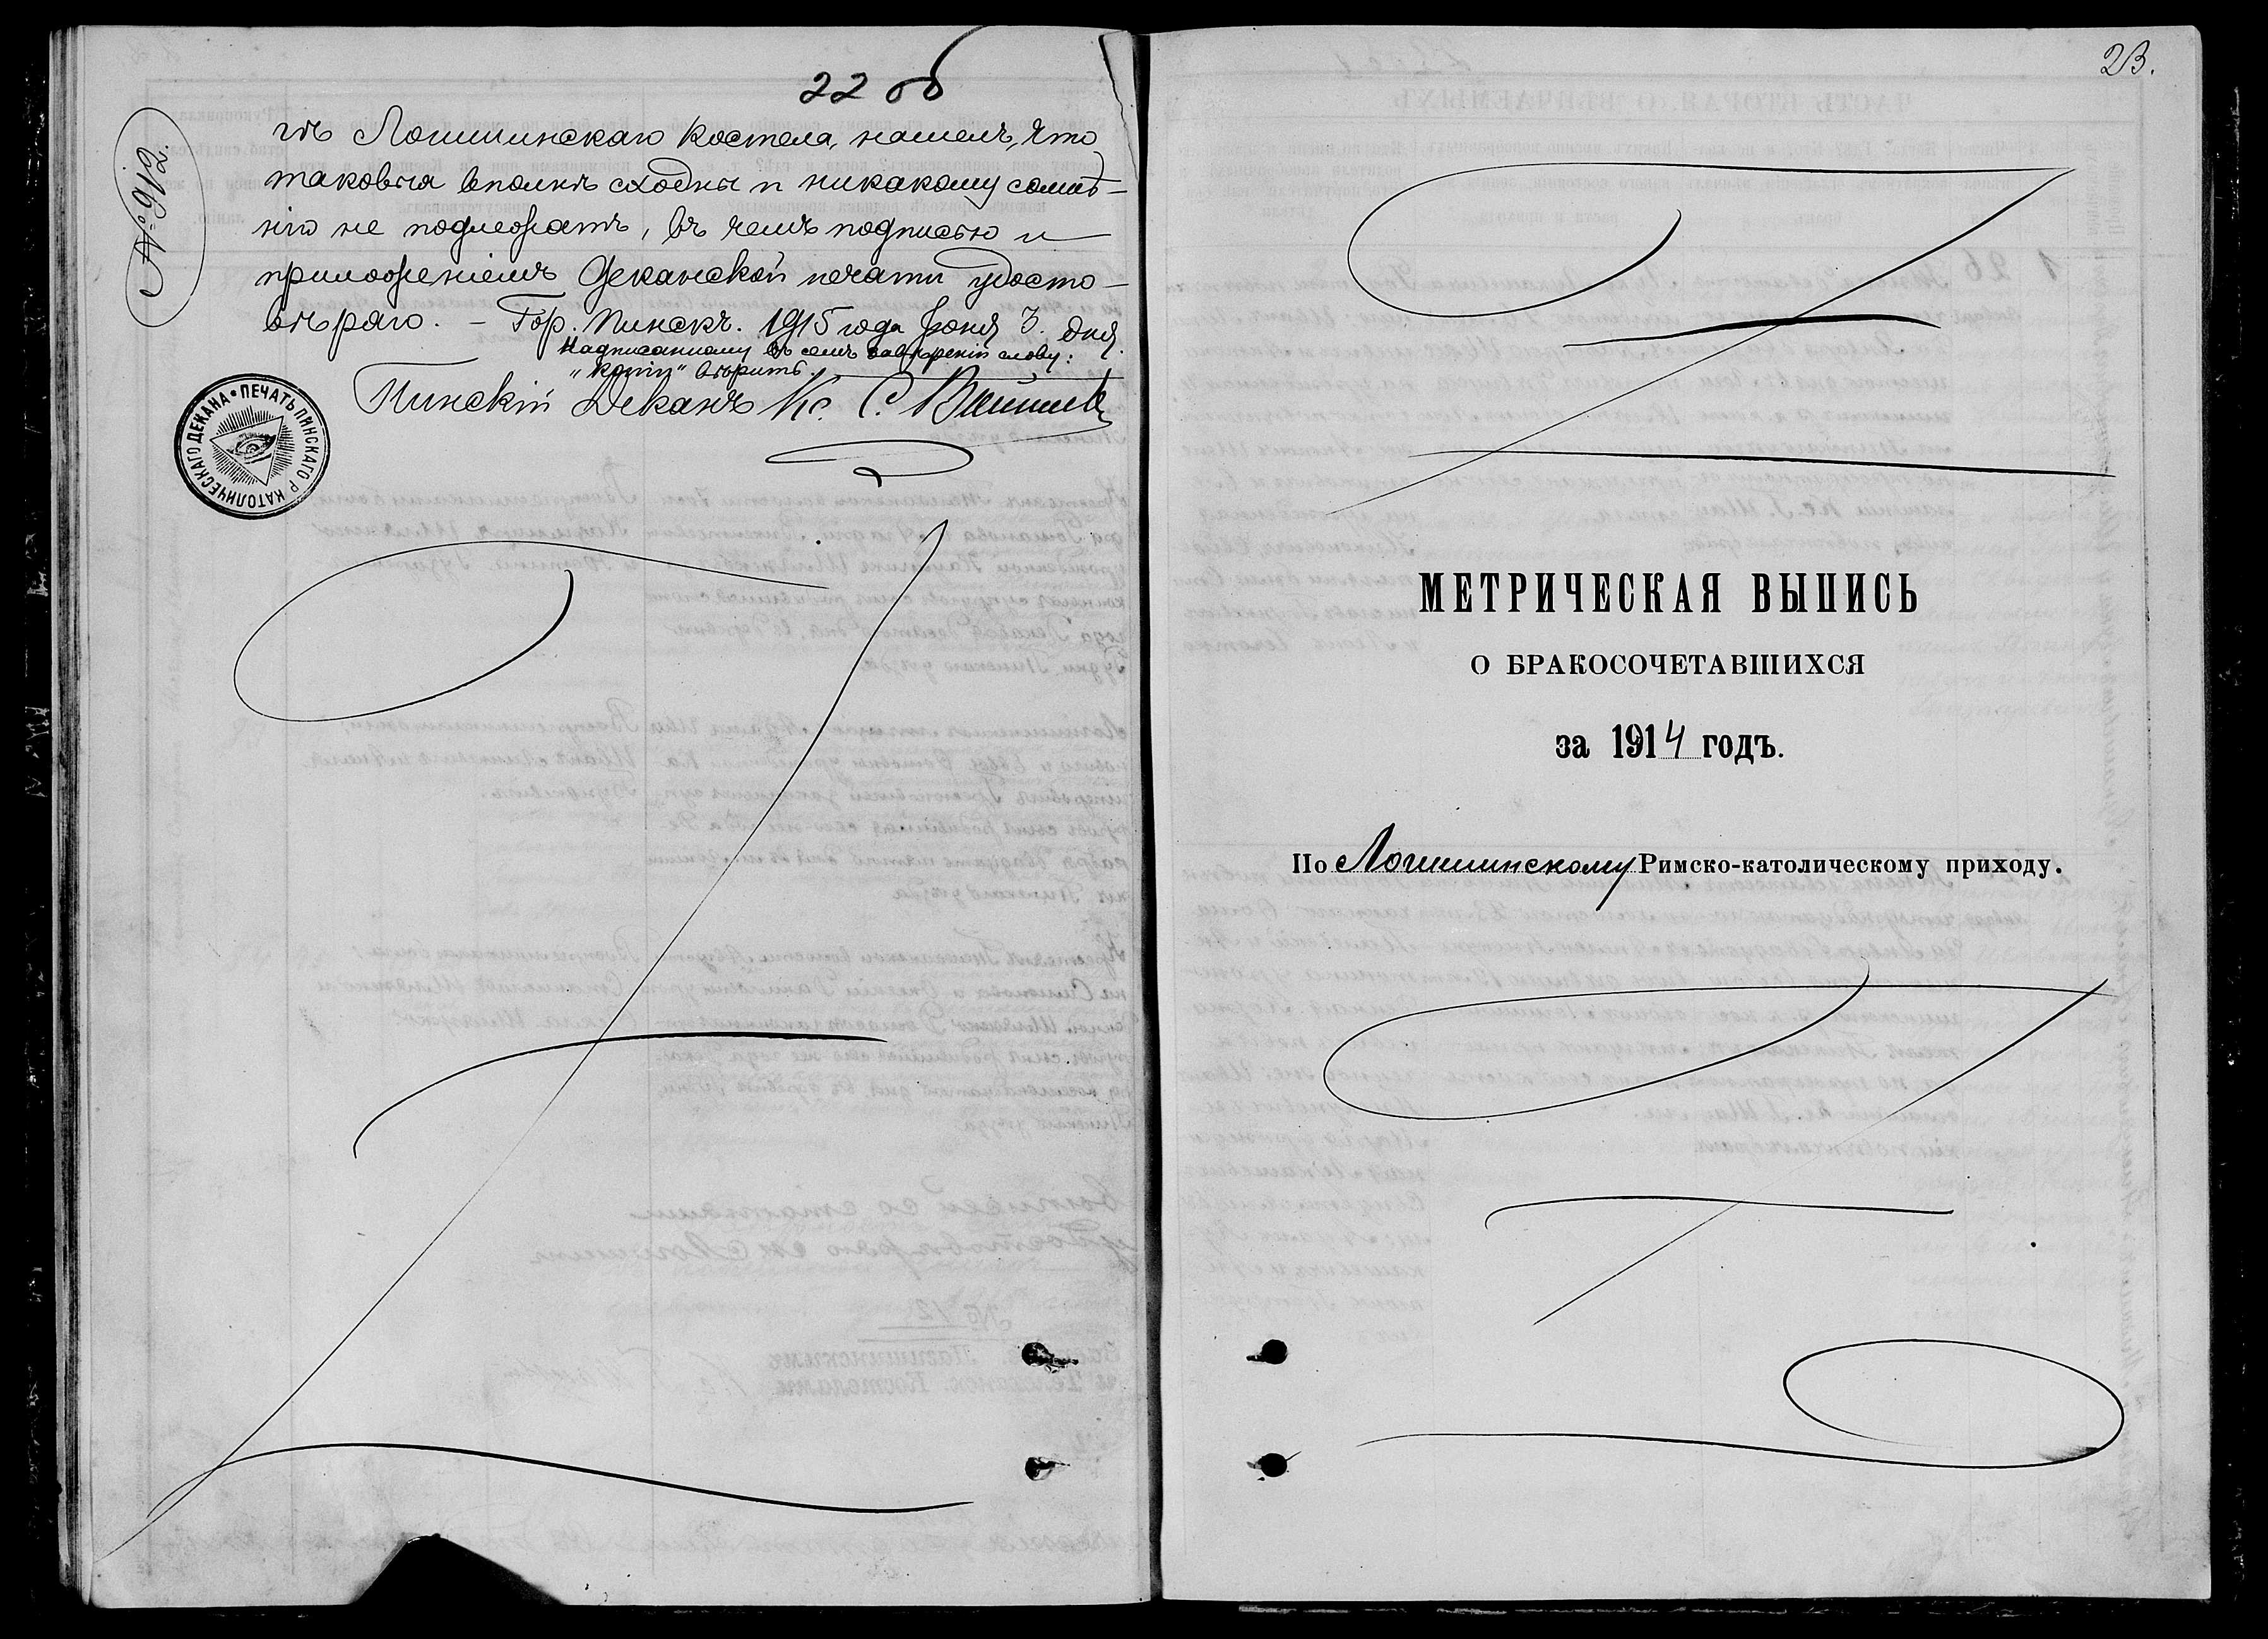 22 об
№ 912.
гѣ Логишинскаго костела, нашелъ, что
таковыя вполнѣ сходны и никакому сомнѣ-
нію не подлежатъ, въ чемъ подписью и
приложеніемъ Деканской печати удосто-
вѣряю. - Гор. Пинскъ. 1915 года Іюня 3. дня.
Надписанному въ семъ завѣреніи слову:
"копіи" вѣрить.
Пинскій Деканъ Кс. С.
ПЕЧАТЬ ПИНСКАГО Р. КАТОЛИЧЕСКАГО ДЕКАНА
23.
МЕТРИЧЕСКАЯ ВЫПИСЬ
О БРАКОСОЧЕТАВШИХСЯ
за 1914 годъ.
По Логишинскому Римско-католическому приходу.